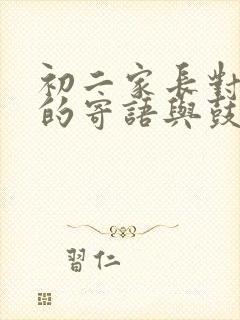 初二家長對
的寄語與鼓
習仁